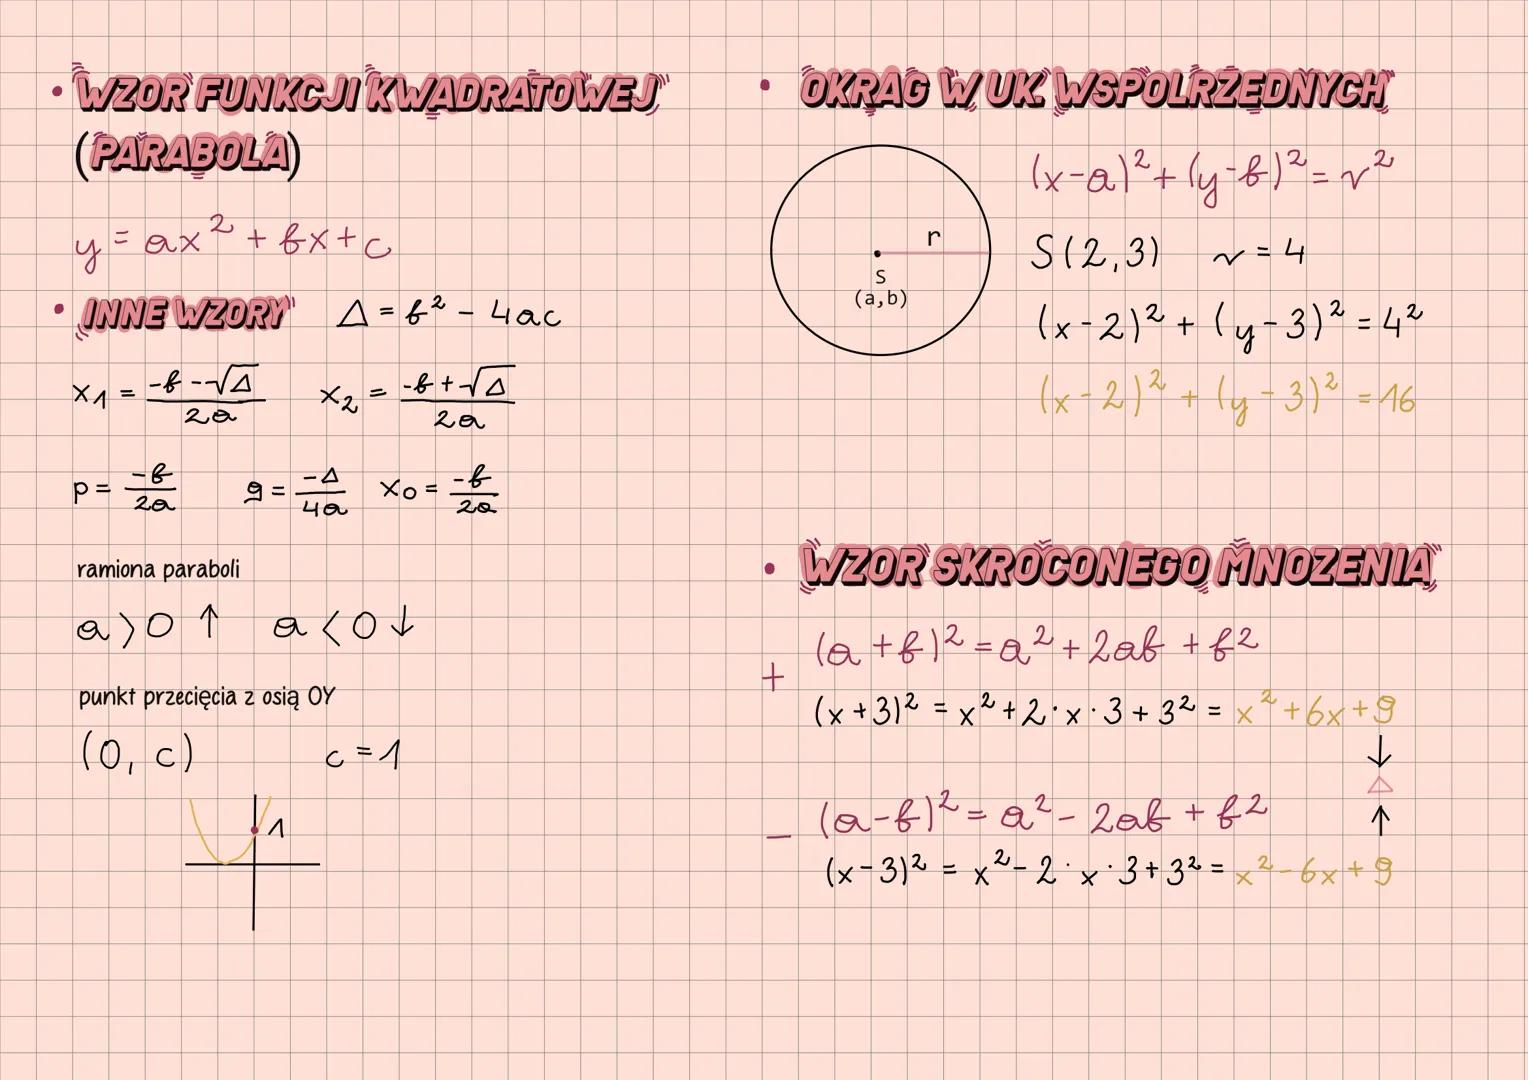 • WZOR FUNKCJI KWADRATOWEJ
(PARABOLA)
y = ax² + bx + c
• INNE WZORY Δ = b² - 4ac
x₁ = (-b--√Δ)/2a x₂ = (-b+√Δ)/2a
p = -b/2a g = -Δ/4a x₀ = -b/2a
ramiona paraboli
a > 0 ↑ a < 0 ↓
punkt przecięcia z osią OY
(0, c) c = 1
1
• OKRAG W UK. WSPOLRZEDNYCH
r
S
(a,b)
(x-a)² + (y-b)² = r²
S(2,3) r = 4
(x-2)² + (y-3)² = 4²
(x-2)² + (y-3)² = 16
• WZOR SKROCONEGO MNOZENIA
+ (a+b)² = a² + 2ab + b2
(x+3)² = x² + 2·x·3 + 3² = x² + 6x + 9
↓
Δ
↑
- (a-b)² = a² - 2ab + b2
(x-3)² = x² - 2·x·3 + 3² = x² - 6x + 9